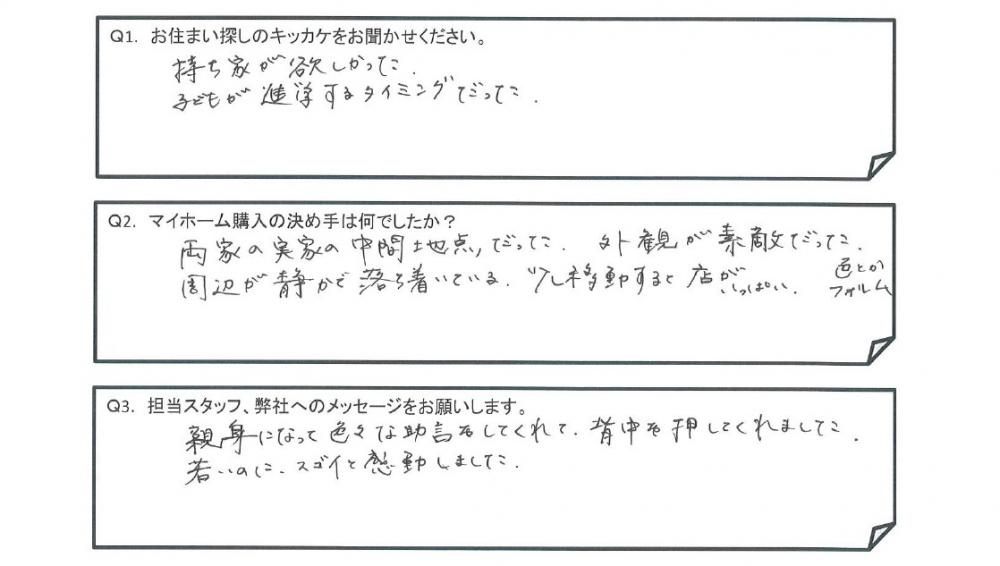 Q1. お住まい探しのキッカケをお聞かせください。
持ち家が欲しかった.
子どもが進学するタイミングだった.
Q2. マイホーム購入の決め手は何でしたか？
両家の実家の中間地点だった. 外観が素敵だった.
色とか
フォルム
周辺が静かで落ち着いている. 少し移動すると店がいっぱい.
Q3. 担当スタッフ、弊社へのメッセージをお願いします。
親身になって色々な助言をしてくれて、背中を押してくれました.
若いのに、スゴイと感動しました.